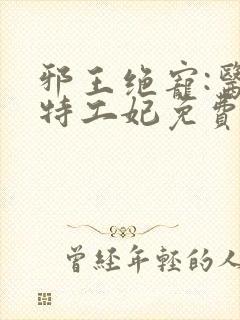 邪王绝宠:醫
特工妃免費
曾经年輕的人